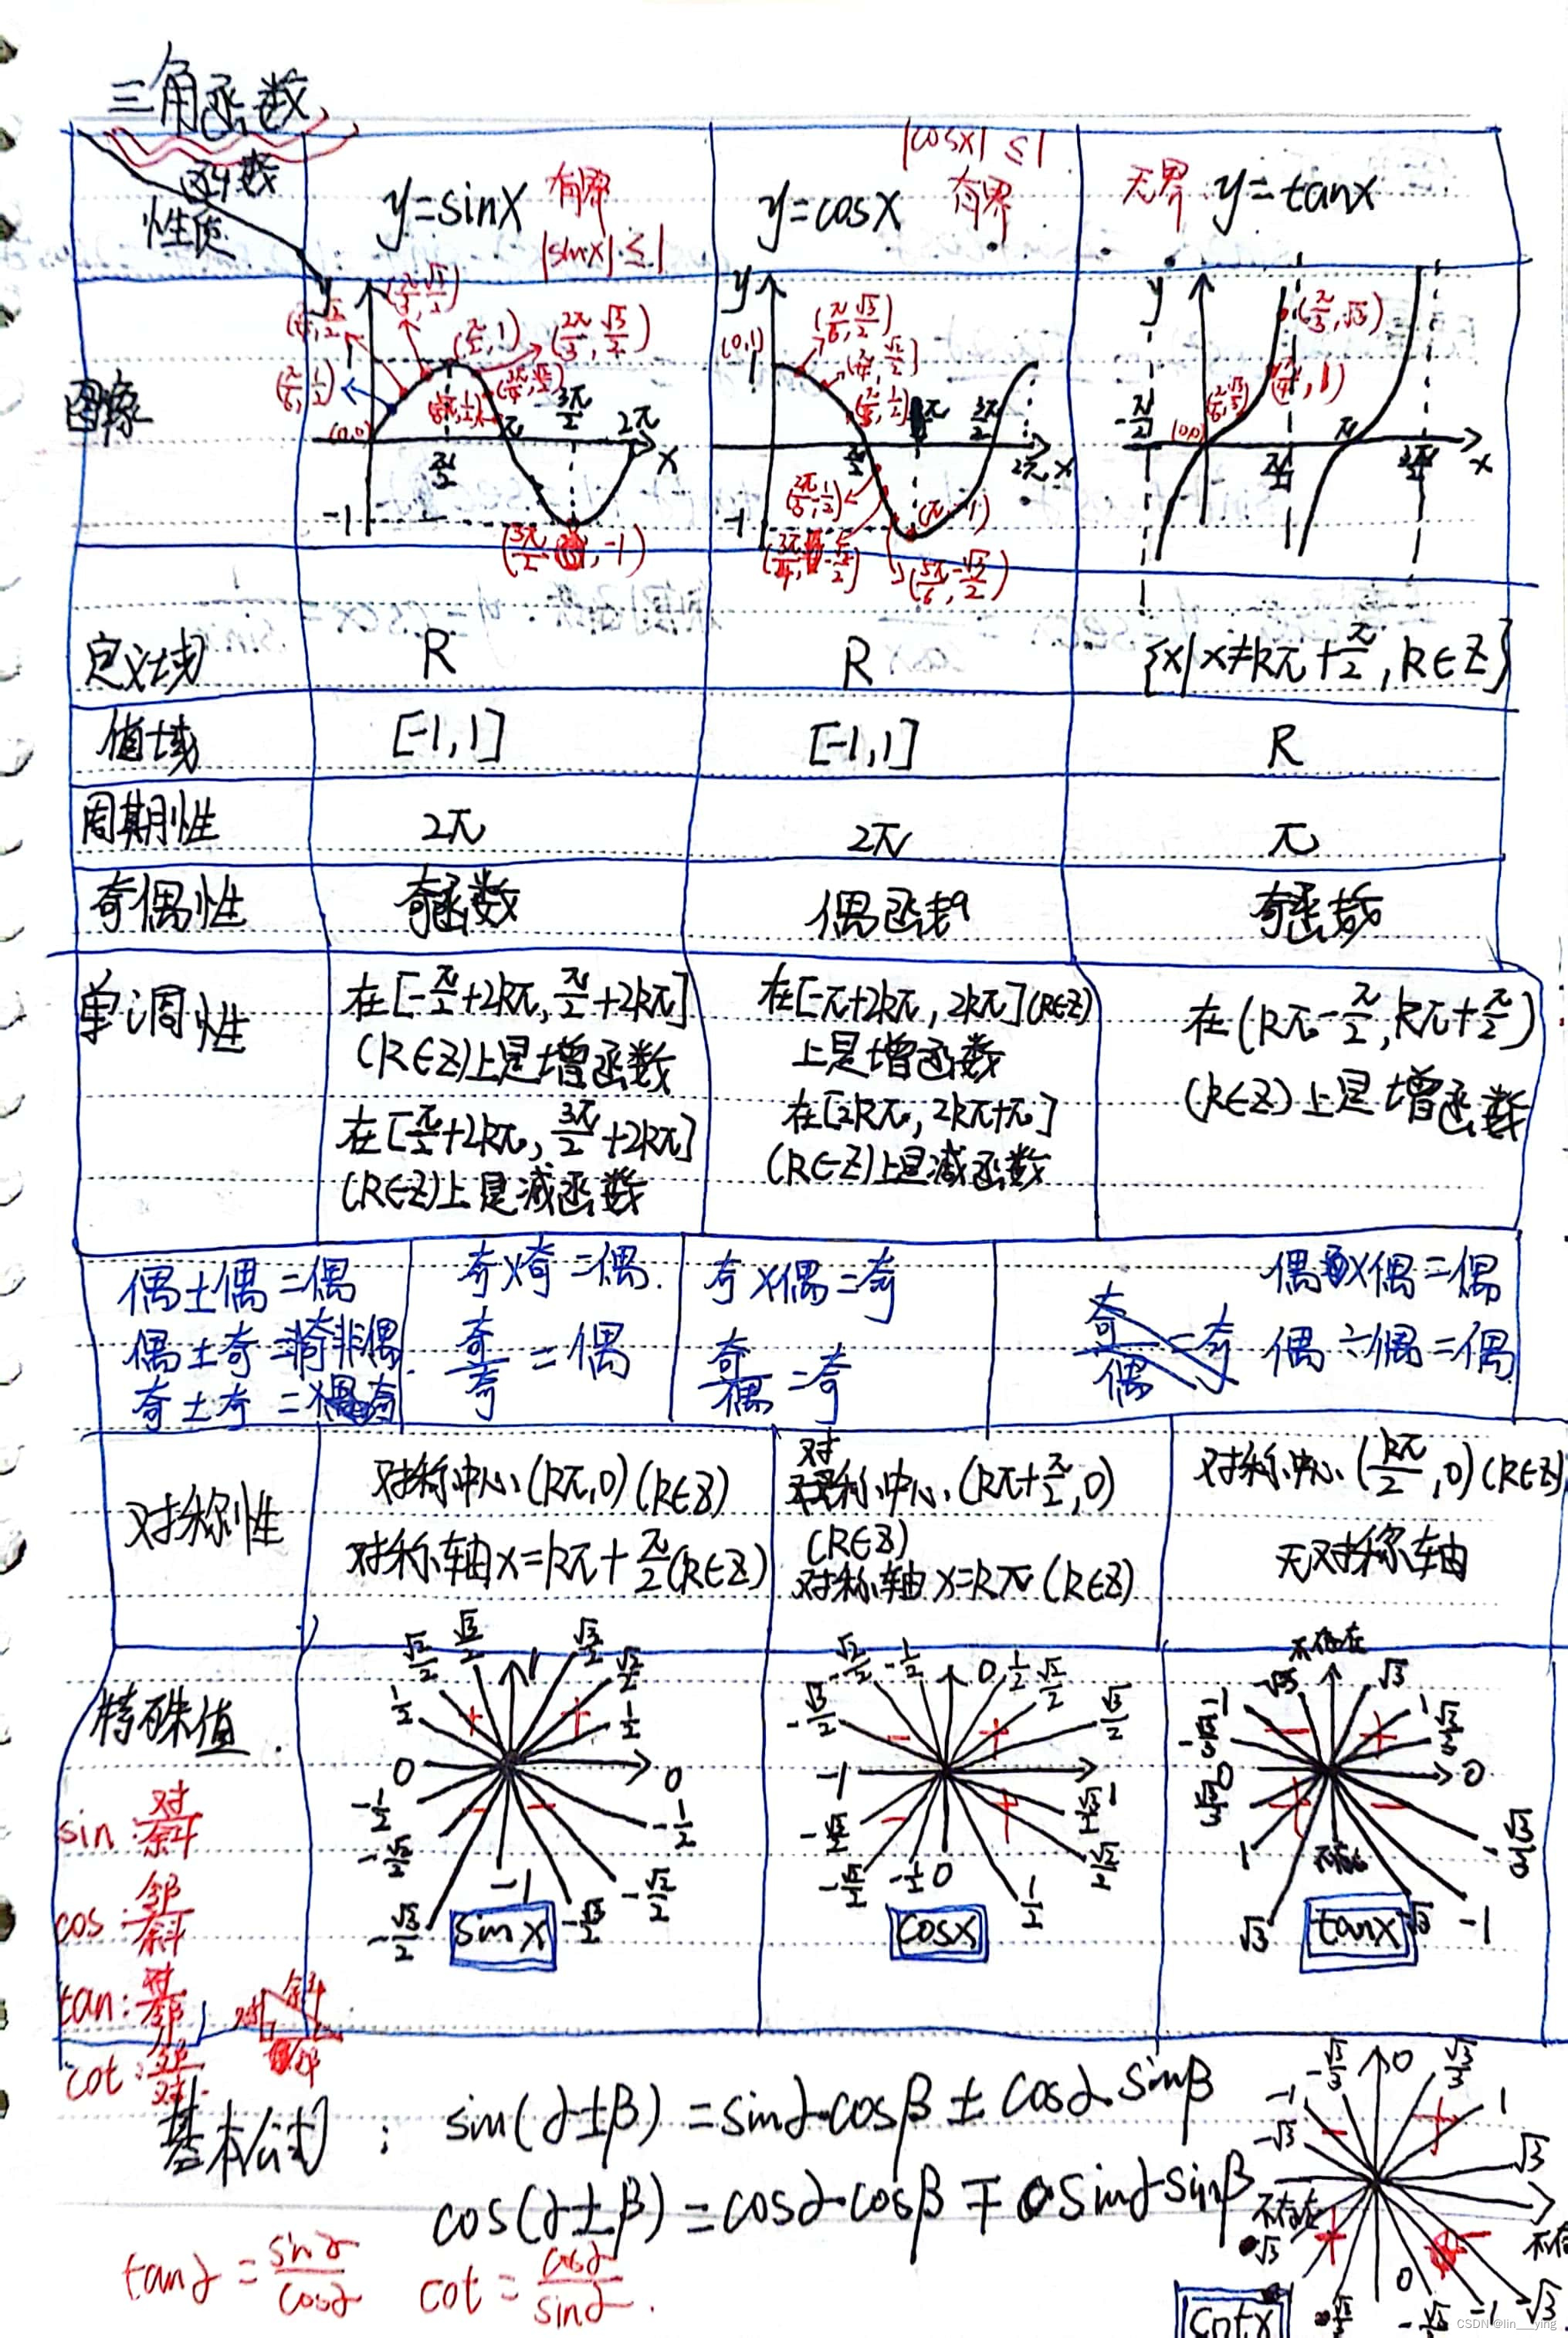 三角函数
函数
性质
y=sinx 有界
|sinx| ≤1
|cosx| ≤1
y=cosx 有界
无界 y=tanx
图像
y
(π/3, √3/2)
(π/6, 1/2)
(π/2, 1)
(2π/3, √3/2)
(0,0)
π/2
π
3π/2
2π
x
-1
(3π/2, -1)
y
(0,1)
1
(π/6, √3/2)
(π/4, √2/2)
(π/3, 1/2)
π/2
π
3π/2
2π
x
-1
(π, -1)
(5π/6, -√3/2)
y
(π/3, √3)
(π/4, 1)
(π/6, √3/3)
(0,0)
-π/2
π/2
π
3π/2
x
定义域 R R {x| x≠kπ+π/2, k∈Z}
值域 [-1,1] [-1,1] R
周期性 2π 2π π
奇偶性 奇函数 偶函数 奇函数
单调性
在[-π/2+2kπ, π/2+2kπ]
(k∈Z)上是增函数
在[π/2+2kπ, 3π/2+2kπ]
(k∈Z)上是减函数
在[-π+2kπ, 2kπ](k∈Z)
上是增函数
在[2kπ, 2kπ+π]
(k∈Z)上是减函数
在(kπ-π/2, kπ+π/2)
(k∈Z)上是增函数
偶±偶=偶
偶±奇=非奇非偶.
奇±奇=奇
奇×奇=偶.
奇/奇=偶
奇×偶=奇
奇/偶=奇
奇/偶=奇
偶×偶=偶
偶÷偶=偶
对称性
对称中心(kπ,0)(k∈Z)
对称轴x=kπ+π/2(k∈Z)
对
对称中心(kπ+π/2,0)
(k∈Z)
对称轴x=kπ(k∈Z)
对称中心(kπ/2,0)(k∈Z)
无对称轴
特殊值
√2/2 √3/2 1 √3/2 √2/2
1/2 + + 1/2
0 0
-1/2 - - -1/2
-√2/2 -√2/2
-√3/2 -1 -√3/2
sinx
-√2/2 -1/2 0 1/2 √2/2
-√3/2 - + √3/2
-1 1
-√3/2 - + √3/2
-√2/2 -1/2 0 1/2 √2/2
cosx
不存在
-1 -√3 √3 1
-√3/3 - + √3/3
0 0
√3/3 + - -√3/3
1 不存在
√3 -√3 -1
tanx
sin:对/斜
cos:邻/斜
tan:对/邻
cot:邻/对
对 斜 邻
基本公式: sin(α±β)=sinα·cosβ±cosα·sinβ
cos(α±β)=cosα·cosβ∓sinα·sinβ
tanα=sinα/cosα cot=cosα/sinα.
-√3/3 0 √3/3
-1 1
-√3 - + √3
不存在
√3 + -
0 -√3/3 -1 -√3
cotx
CSDN @lin___ying